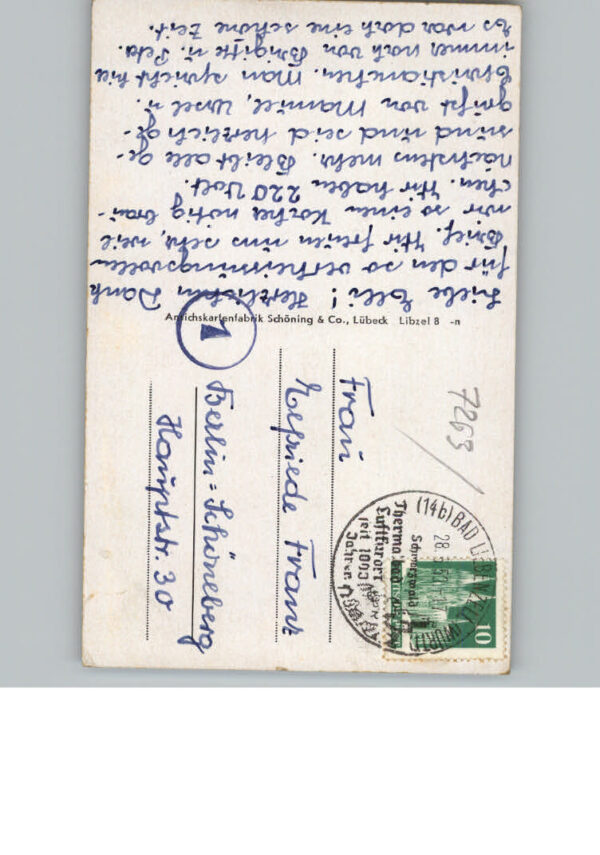 Liebe Elli! Herzlichen Dank
für den so verheissungsvollen
Brief. Wir freuen uns sehr, weil
wir so einen Kocher nötig brau-
chen. Wir haben 220 Volt.
Nächstens mehr. Bleibt alle ge-
sund und seid herzlich ge-
grüßt von Manuel, Ursel u.
Christianchen. Man spricht hier
immer noch von Brigitte u. Peta.
Es war doch eine schöne Zeit.
Ansichskartenfabrik Schöning & Co., Lübeck Libzel 8 -n
1
7263
Frau
Elfriede Franz
Berlin-Schöneberg
Hauptstr. 30
(14b) BAD (WÜRTT)
28.
Schwarzwald
Thermalbad
Luftkurort
seit 1000
Jahren
10